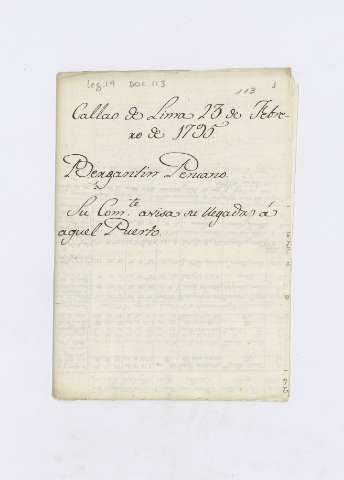 Leg. 19 Doc 113
113 1
Callao de Lima 23 de Febre-
ro de 1795
Bergantin Peruano.
Su Com.te avisa su llegada á
aquel Puerto.